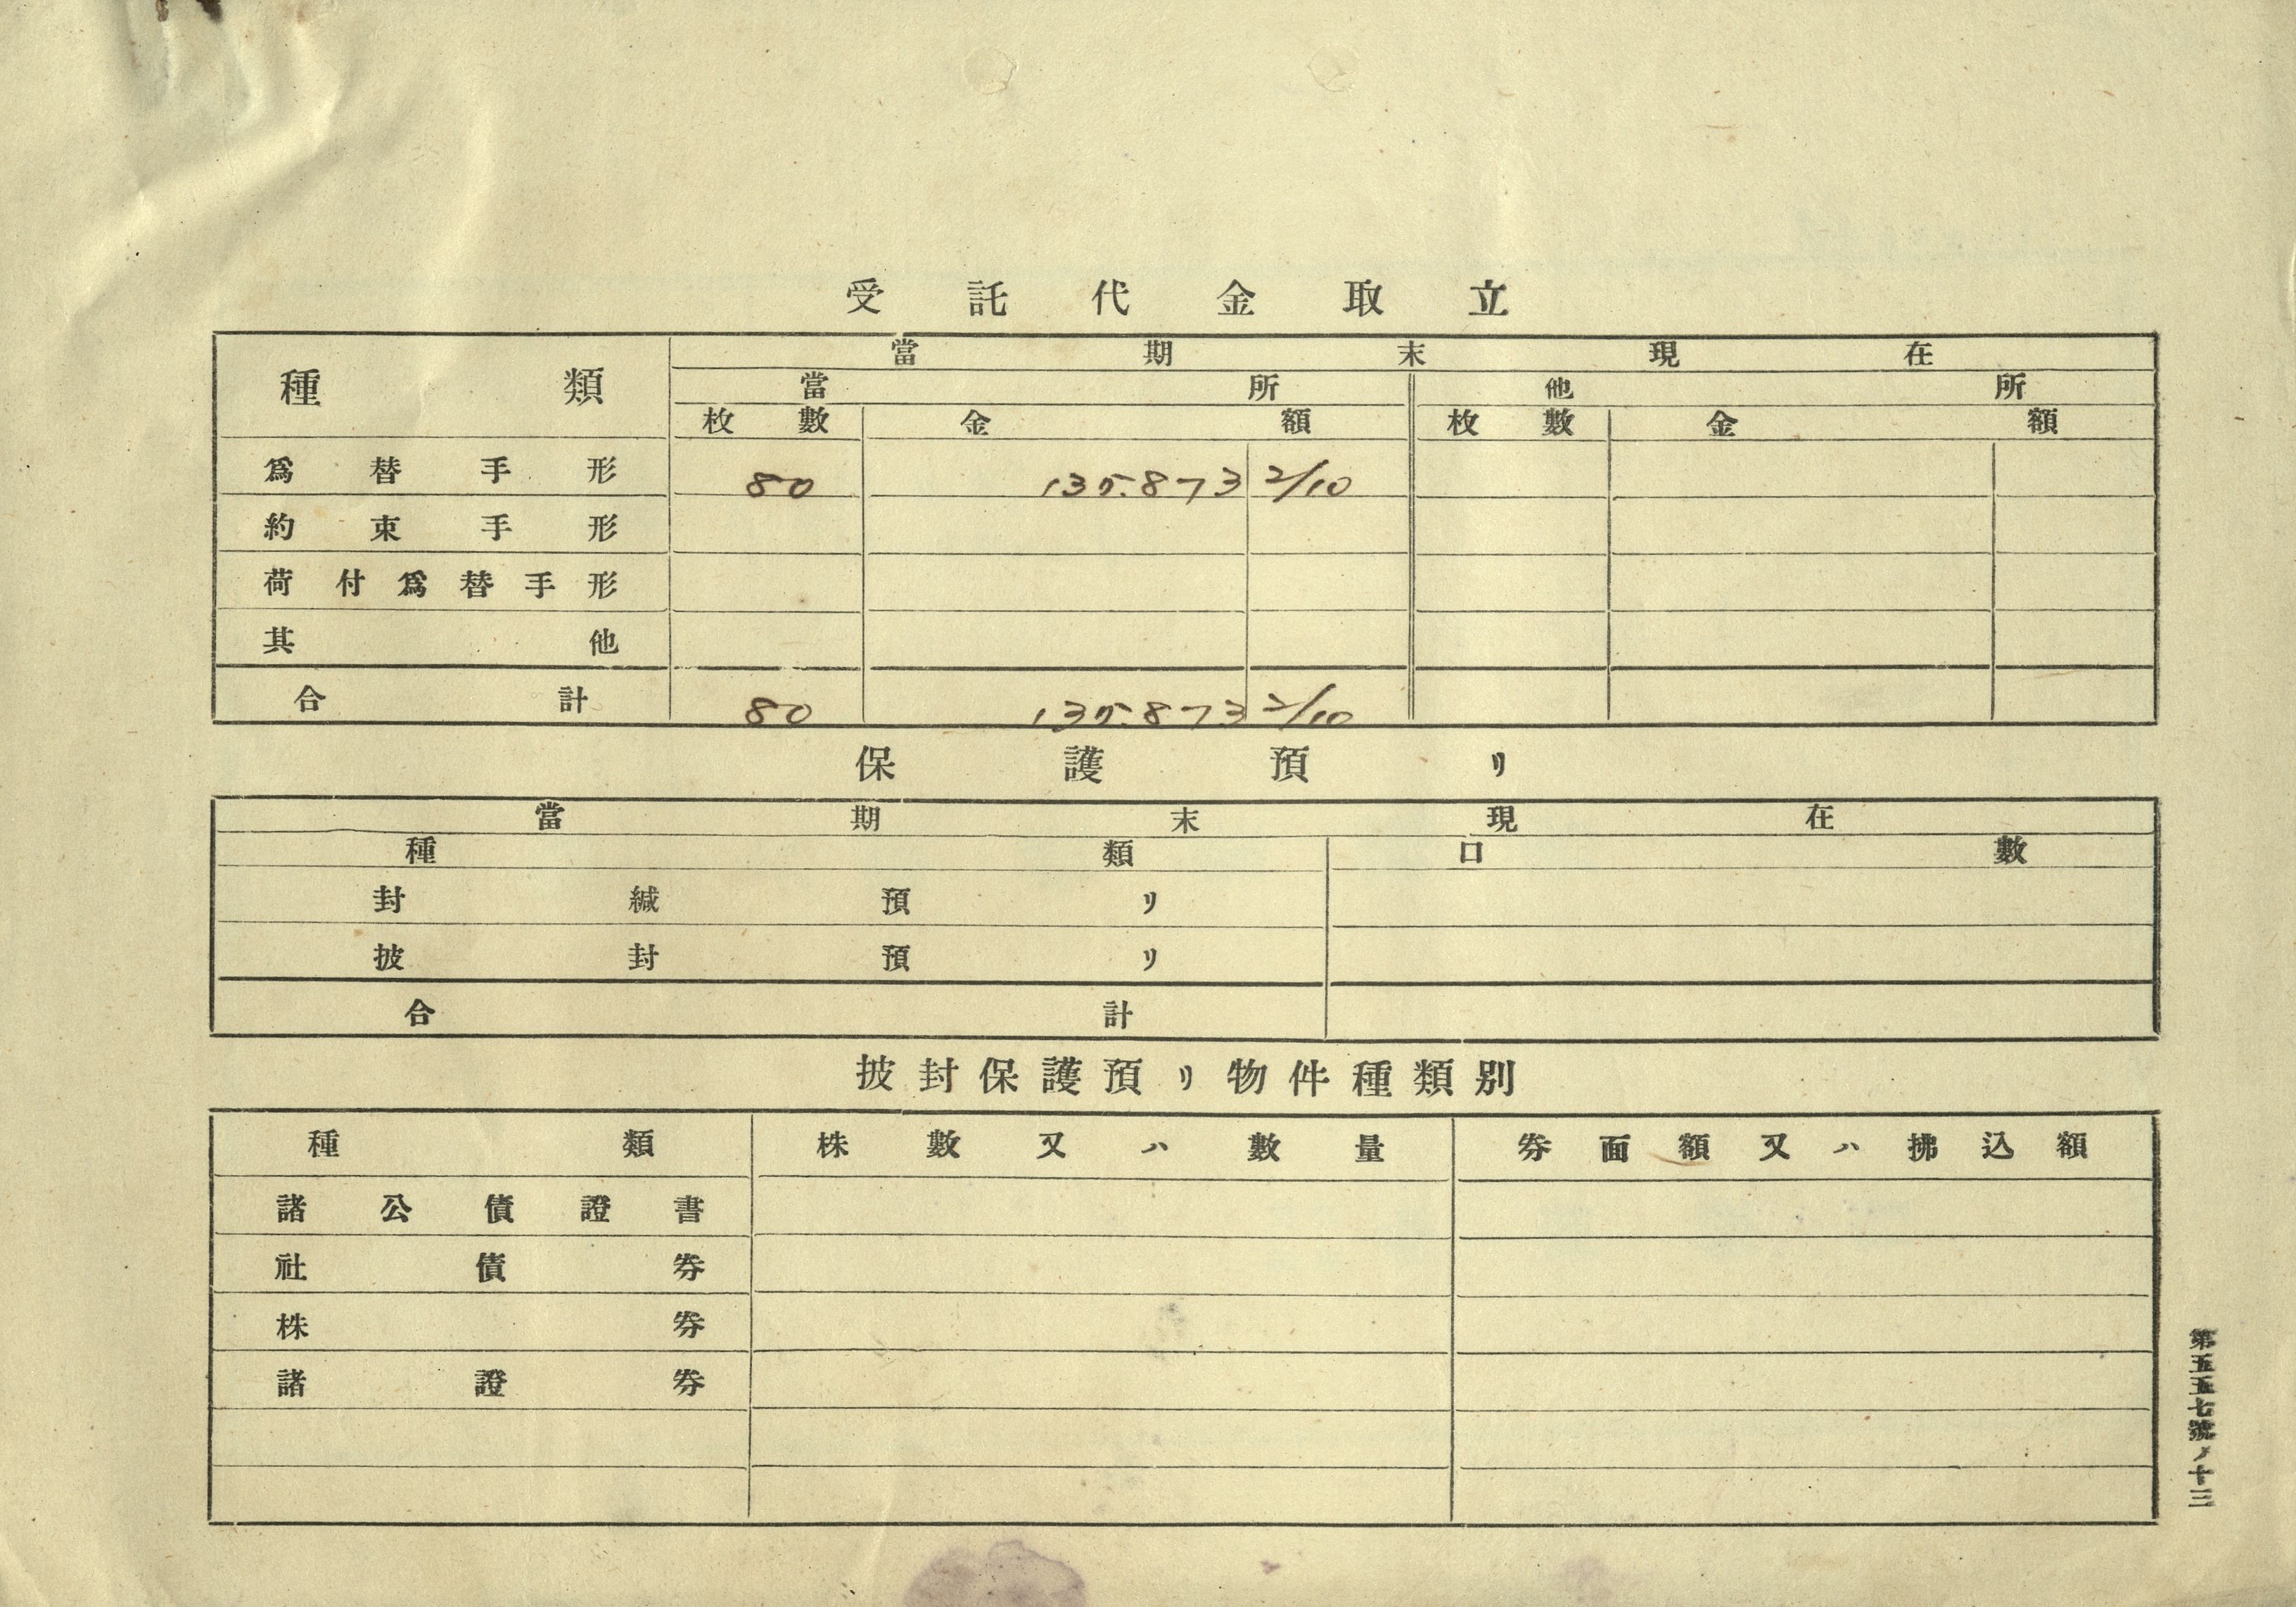 受託代金取立
種類 當期末現在
當所 他所
枚數 金額 枚數 金額
爲替手形 80 135.873 2/10
約束手形
荷付爲替手形
其他
合計 80 135.873 2/10
保護預リ
當期末現在
種類 口數
封緘預リ
披封預リ
合計
披封保護預リ物件種類別
種類 株數又ハ數量 券面額又ハ拂込額
諸公債證書
社債券
株券
諸證券
第五五七號ノ十三